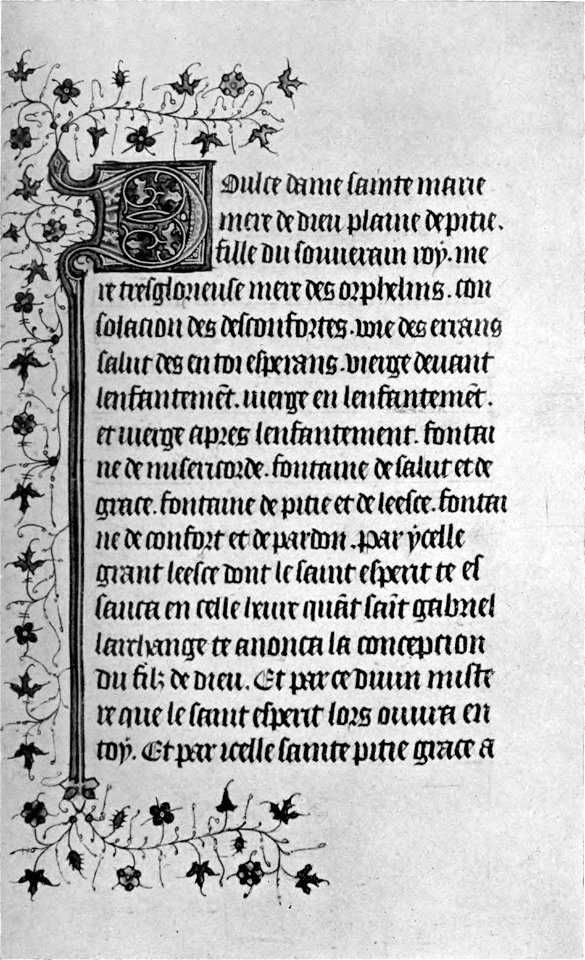 Dulce dame sainte marie
mere de dieu plaine de pitie.
fille du souuerain roy. me
re tresglorieuse mere des orphelins. con
solacion des desconfortes. voie des errans
salut des en toi esperans. vierge deuant
lenfantemẽt. vierge en lenfantemẽt.
et vierge apres lenfantement. fontai
ne de misericorde. fontaine de salut et de
grace. fontaine de pitie et de leesce. fontai
ne de confort et de pardon. Par ycelle
grant leesce dont le saint esperit te es
sauca en celle heure quãt sait̃ gabriel
larchange te anonca la concepcion
du filz de dieu. Et par ce diuin miste
re que le saint esperit lors ouura en
toy. Et par icelle sainte pitie grace a